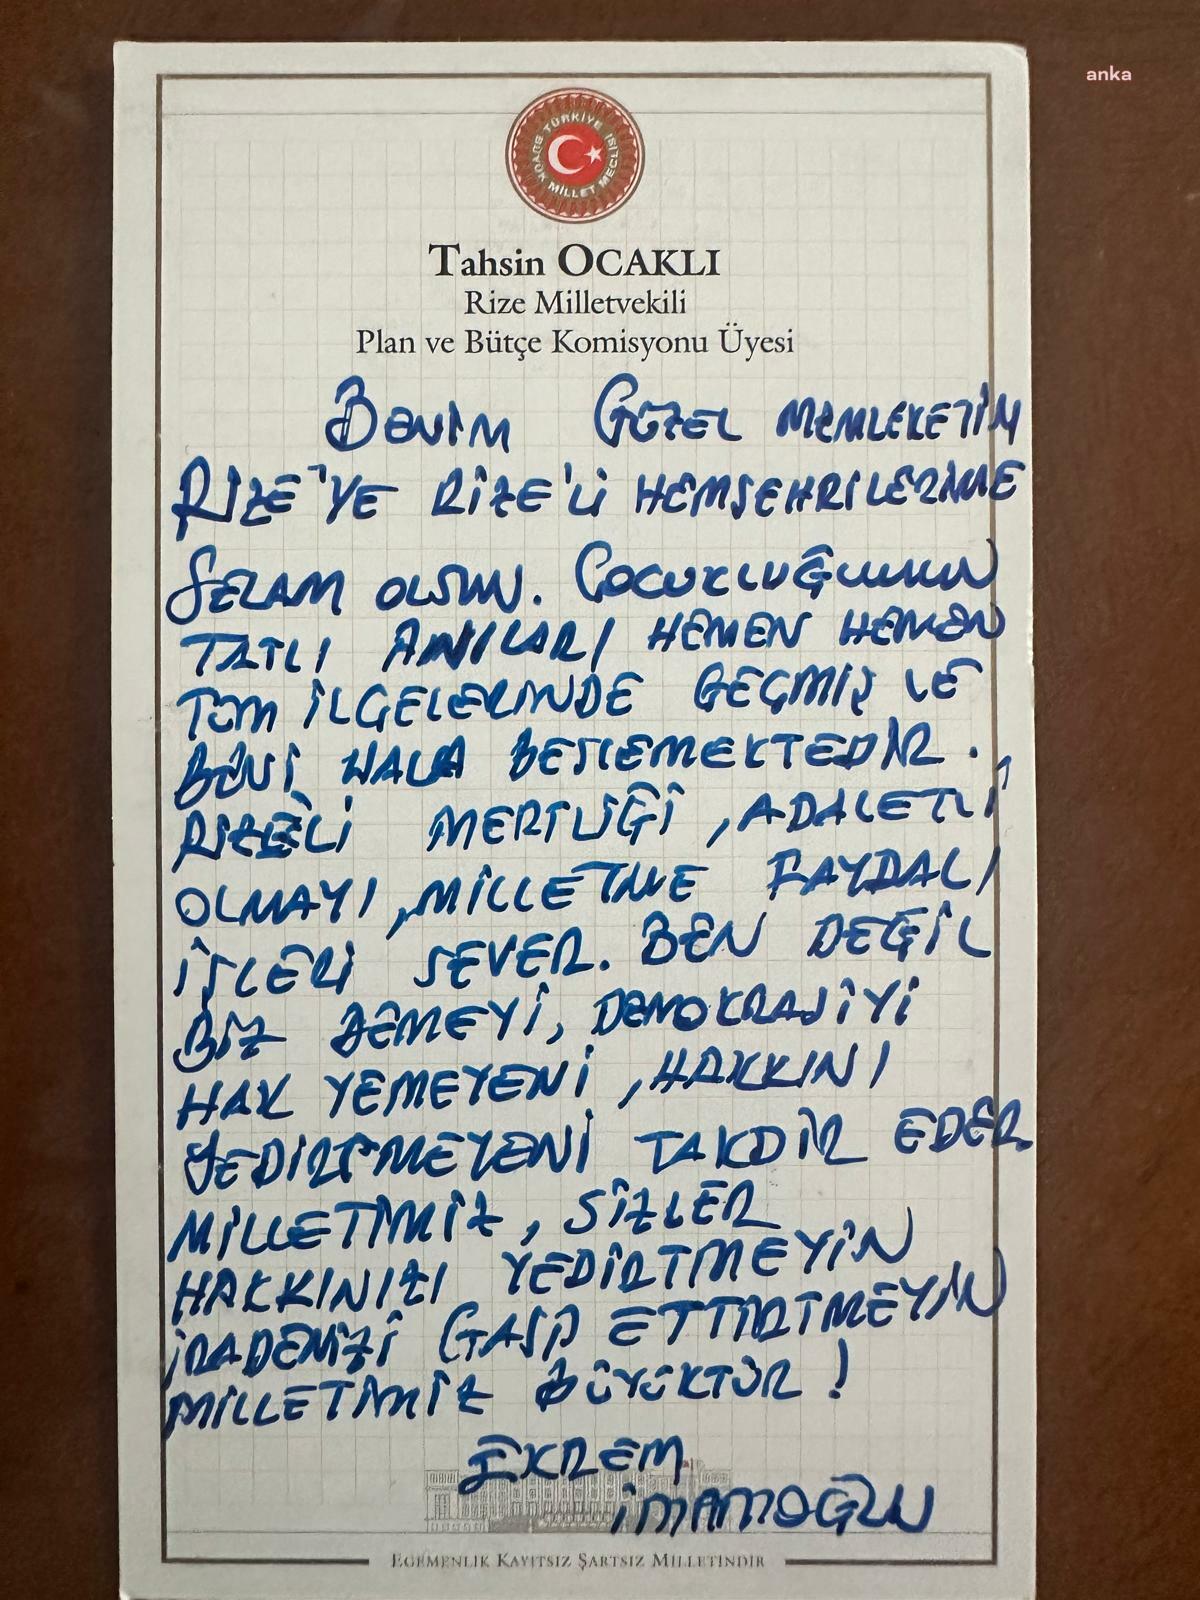 anka
TÜRKİYE BÜYÜK MİLLET MECLİSİ
Tahsin OCAKLI
Rize Milletvekili
Plan ve Bütçe Komisyonu Üyesi
BENİM GÜZEL MEMLEKETİM
RİZE'YE RİZE'Lİ HEMŞEHRİLERİME
SELAM OLSUN. ÇOCUKLUĞUMUN
TATLI ANILARI HEMEN HEMEN
TÜM İLÇELERİNDE GEÇMİŞ VE
BENİ HALA BESLEMEKTEDİR.
RİZELİ MERTLİĞİ, ADALETLİ
OLMAYI, MİLLETİNE FAYDALI
İŞLERİ SEVER. BEN DEĞİL
BİZ DEMEYİ, DEMOKRASİYİ
HAK YEMEYENİ, HAKKINI
YEDİRTMEYENİ TAKDİR EDER
MİLLETİMİZ, SİZLER
HAKKINIZI YEDİRTMEYİN
İRADENİZİ GASP ETTİRTMEYİN
MİLLETİMİZ BÜYÜKTÜR!
EKREM
İMAMOĞLU
EGEMENLİK KAYITSIZ ŞARTSIZ MİLLETİNDİR